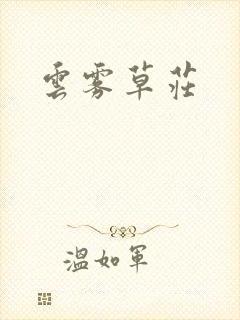 雲雾草莊
溫如軍